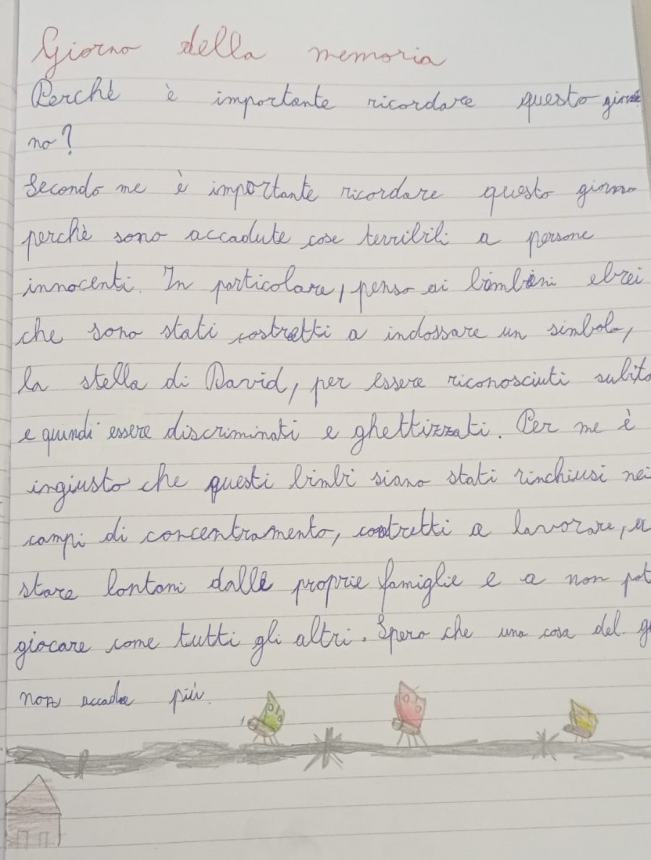 Giorno della memoria
Perchè è importante ricordare questo gior
no?
Secondo me è importante ricordare questo giorno
perchè sono accadute cose terribili a persone
innocenti. In particolare, penso ai bambini ebrei
che sono stati costretti a indossare un simbolo,
la stella di David, per essere riconosciuti subito
e quindi essere discriminati e ghettizzati. Per me è
ingiusto che questi bimbi siano stati rinchiusi nei
campi di concentramento, costretti a lavorare, a
stare lontani dalle proprie famiglie e a non pot
giocare come tutti gli altri. Spero che una cosa del g
non accada più.